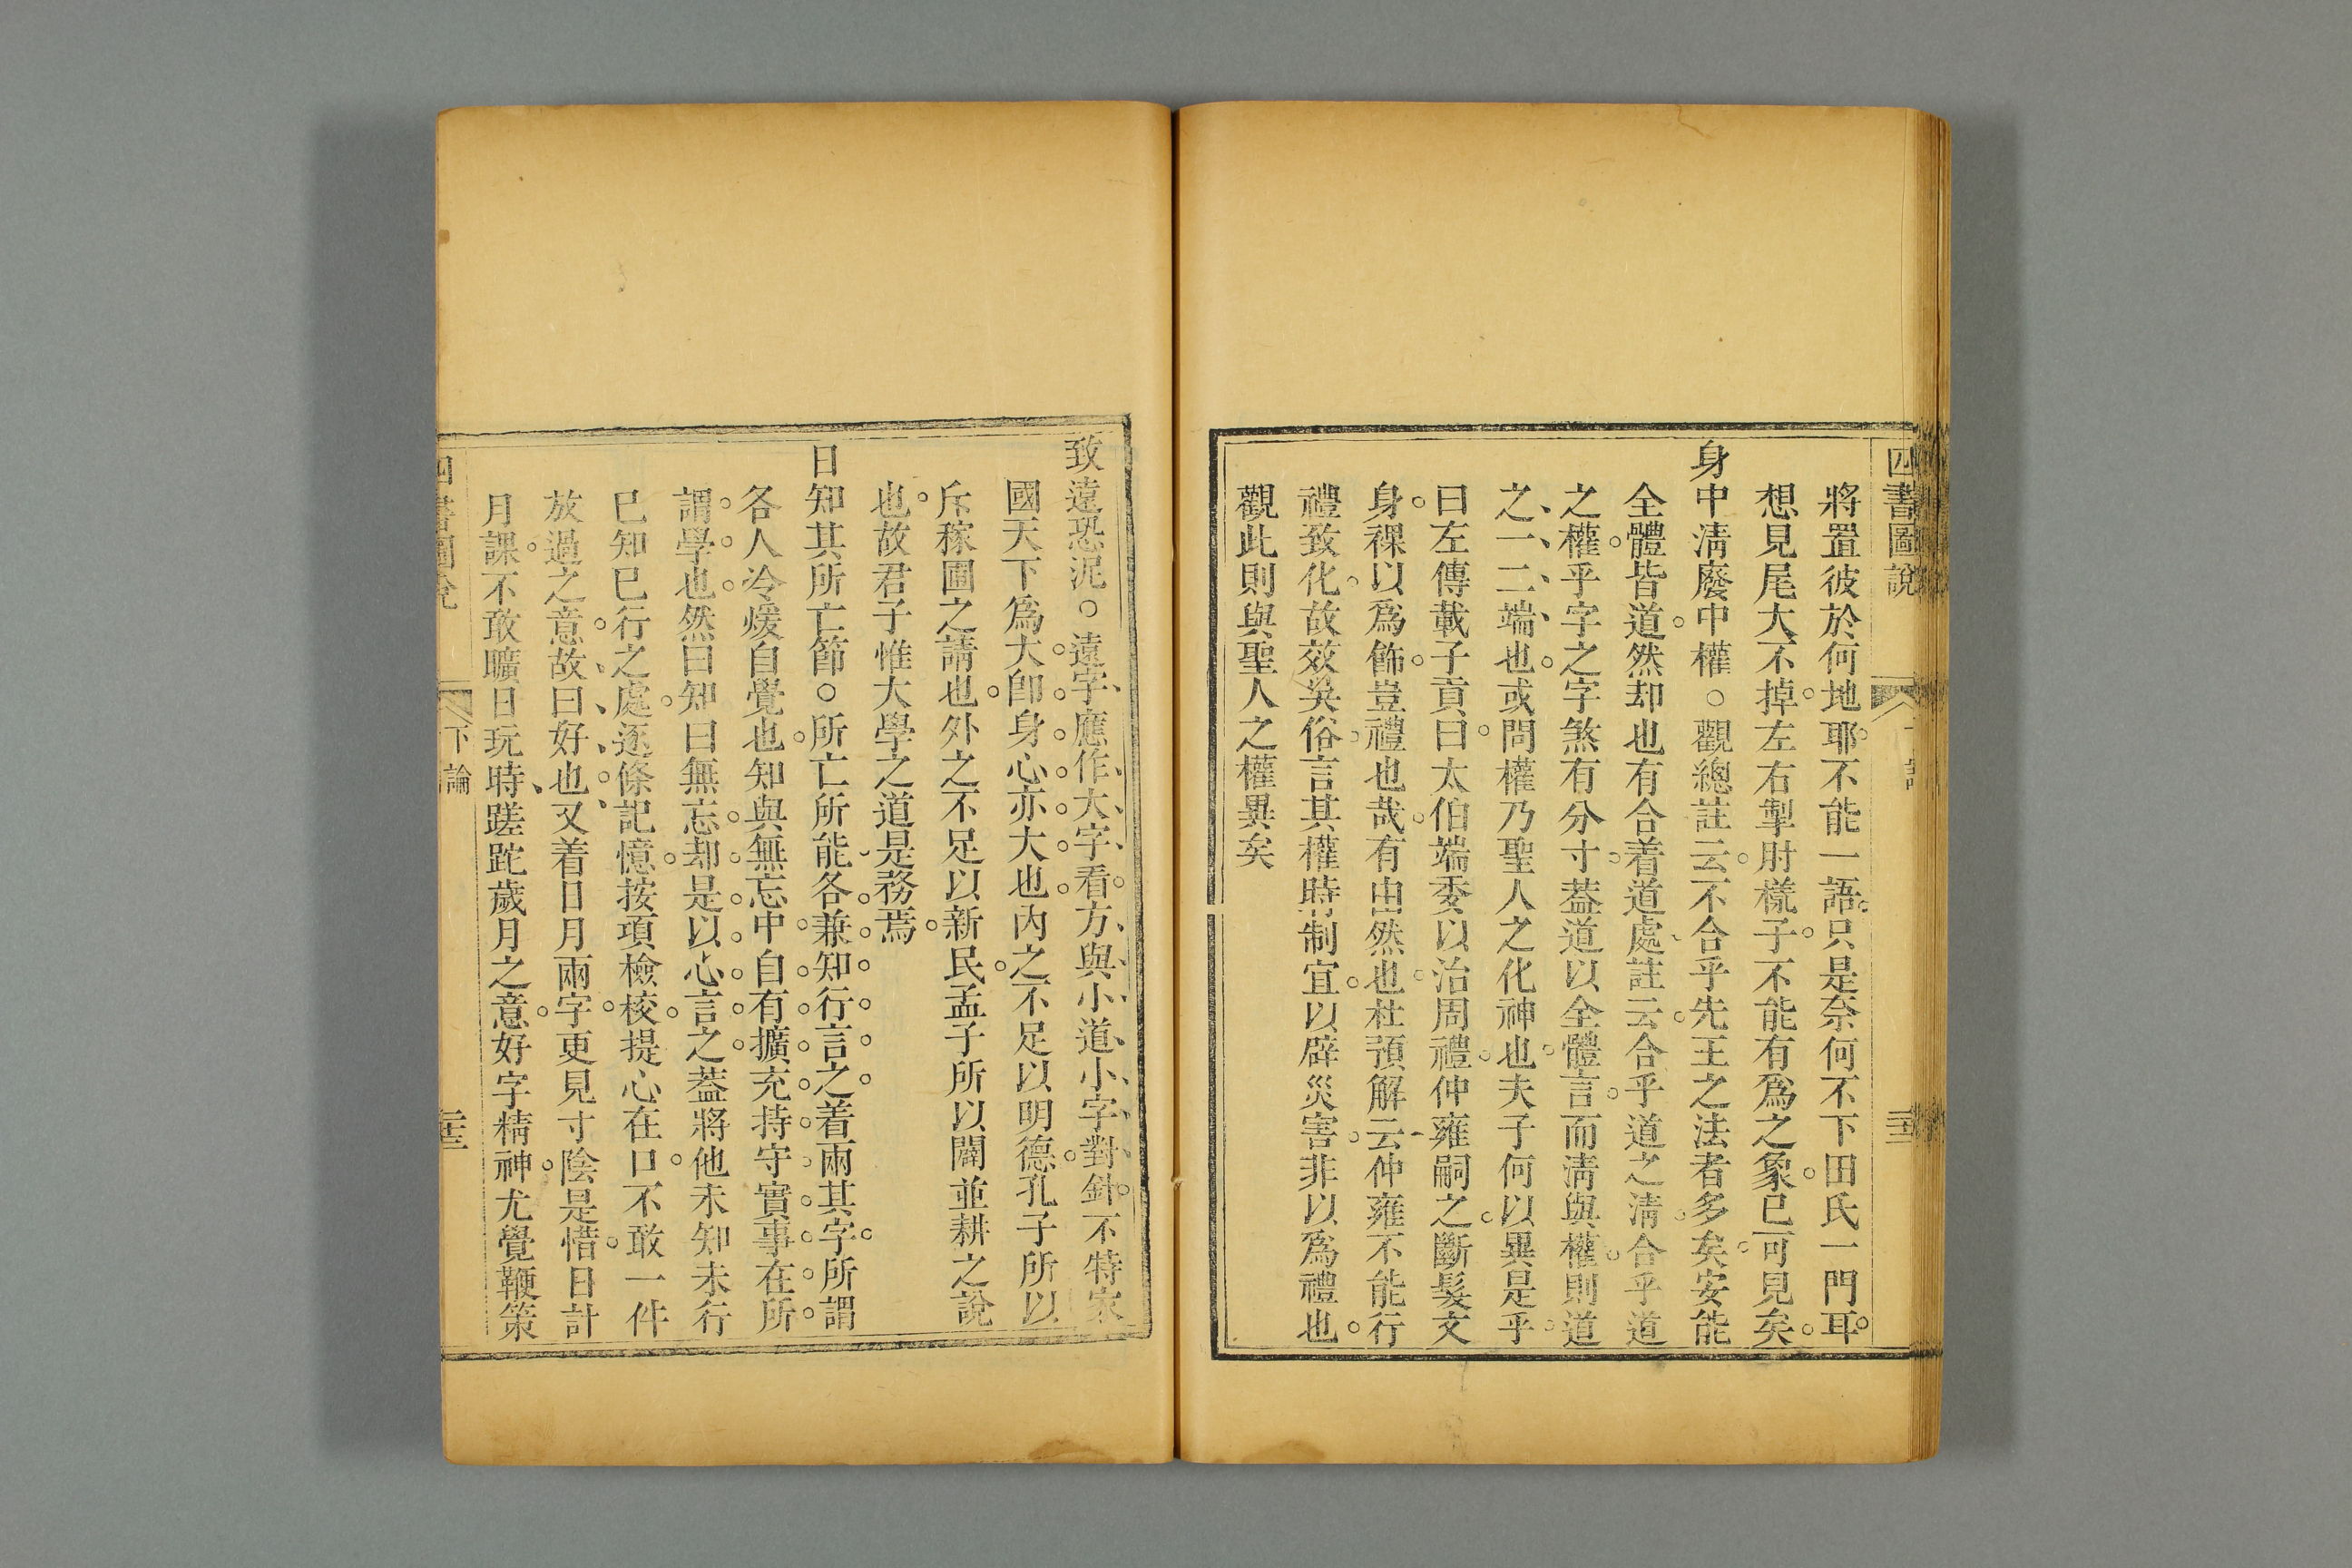 四書圖說
將置彼於何地耶不能一語只是奈何不下田氏一門耳
想見尾大不掉左右掣肘樣子不能有爲之象已可見矣
身中淸廢中權○觀總註云不合乎先王之法者多矣安能
全體皆道然却也有合着道處註云合乎道之淸合乎道
之權乎字之字煞有分寸葢道以全體言而淸與權則道
之一二端也或問權乃聖人之化神也夫子何以異是乎
曰左傳載子貢曰太伯端委以治周禮仲雍嗣之斷髮文
身裸以爲飾豈禮也哉有由然也杜預解云仲雍不能行
禮致化故效吳俗言其權時制宜以辟災害非以爲禮也
觀此則與聖人之權異矣
致遠恐泥○遠字應作大字看方與小道小字對針不特家
國天下爲大卽身心亦大也內之不足以明德孔子所以
斥稼圃之請也外之不足以新民孟子所以闢並耕之說
也故君子惟大學之道是務焉
日知其所亡節○所亡所能各兼知行言之着兩其字所謂
各人冷煖自覺也知與無忘中自有擴充持守實事在所
謂學也然曰知曰無忘却是以心言之葢將他未知未行
已知已行之處逐條記憶按項檢校提心在口不敢一件
放過之意故曰好也又着日月兩字更見寸陰是惜日計
月課不敢曠日玩時蹉跎歲月之意好字精神尤覺鞭策
四書圖說
下論